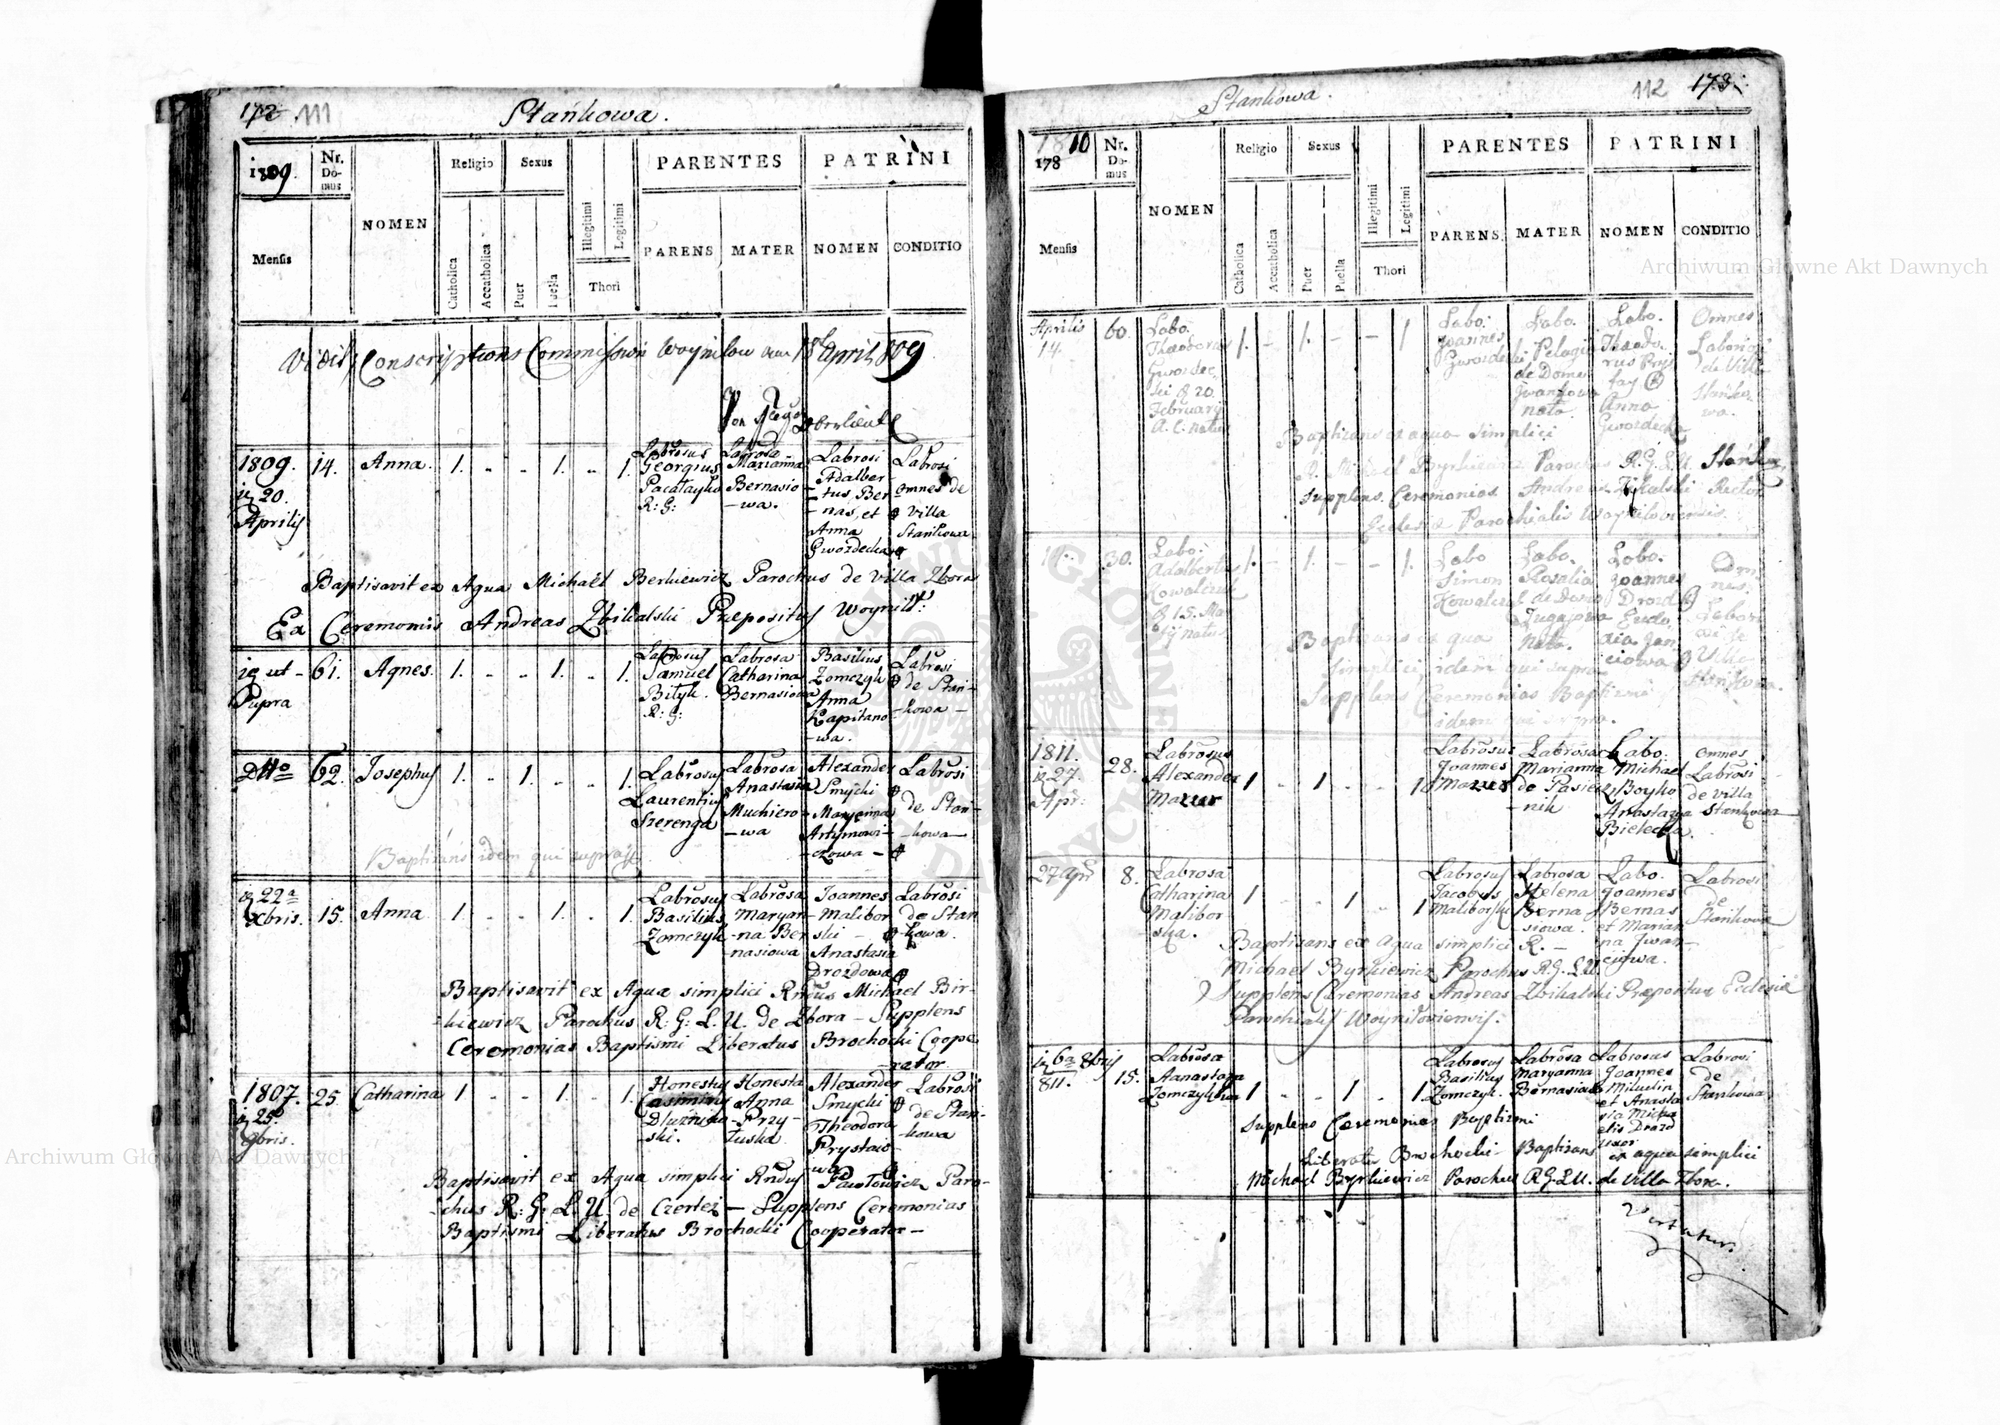 172. 111
Stańkowa.
1809.
Nr. Domus
NOMEN
Religio
Sexus
Illegitimi
Legitimi
PARENTES
PATRINI
Mensis
Catholica
Accatholica
Puer
Puella
Thori
PARENS
MATER
NOMEN
CONDITIO
Vidit Conscriptions Commission Woynilow am 18 April 809
Oberlieut
1809.
20.
Aprilis
14.
Anna.
1. - - 1. - 1.
Labrosus
Georgius
Pacałayko
R: G:
Labrosa
Marianna
Bernasio-
-wa.
Labrosi
Adalber-
-tus Ber-
-nas, et
Anna
Gwozdecka
Labrosi
omnes de
villa
Stankowa
Baptisavit ex Aqua Michaël Berkiewicz Parochus de Villa Zbora
Ex Ceremoniis Andreas Zbikalski Præpositus Woynił:
ut
Supra
61.
Agnes.
1. - - 1. - 1.
Labrosus
Samuel
Bilyk.
R: G:
Labrosa
Catharina
Bernasiowa
Basilius
Zomczyk
Anna
Kapitano-
-wa.
Labrosi
de Stań-
-kowa -
Dtto
62.
Josephus
1. - 1. - - 1.
Labrosus
Laurentius
Szerenga
Labrosa
Anastasia
Muchiero-
-wa
Alexander
Smycki
Maryanna
Artymowi-
-czowa -
Labrosi
de Stan-
-kowa -
Baptisans idem qui supra
22a
Xbris.
15.
Anna
1. - - 1. - 1.
Labrosus
Basilius
Zomczyk
Labrosa
Maryan-
-na Ber-
-nasiowa
Joannes
Malibor-
ski -
Anastasia
Drozdowa
Labrosi
de Stan
-kowa.
Baptisavit ex Aqua simplici Rndus Michael Bir-
-kiewicz Parochus R: G: L. U. de Zbora - Supplens
Ceremonias Baptismi Liberatus Brochocki Coope
rator
1807.
25.
9bris.
25.
Catharina
1. - - 1. - 1.
Honestus
Casimirus
Dłużniew-
-ski.
Honesta
Anna
Przy-
Łuska
Alexander
Smycki
Theodora
Prystaio-
wa
Labrosi
de Stań-
-kowa
Baptisavit ex Aqua simplici Rndus Pawłowicz Paro-
-chus R: G: L. U. de Czertez - Supplens Ceremonias
Baptismi Liberatus Brochocki Cooperator -
Stańkowa.
112 173.
1810
178
Nr. Domus
NOMEN
Religio
Sexus
Illegitimi
Legitimi
PARENTES
PATRINI
Mensis
Catholica
Accatholica
Puer
Puella
Thori
PARENS
MATER
NOMEN
CONDITIO
Aprilis
14.
60.
Labo.
Theodorus
Gwozdec
ki 20
February
a. c. natus
1. - 1. - - 1
Labo.
Joannes
Gwozdecki
Labo.
Pelagia
de Domo
Iwankowa
nata.
Labo.
Theodo-
rus Prys
tay
Anna
Gwozdecka
Omnes
Laboriosi
de Villa
Stańko-
wa.
Baptizans ex aqua simplici
R. Michael Byrkiewicz Parochus R. G. L. U.
Supplens Ceremonias Andreas Zbikalski Rector
Ecclesiæ Parochialis Woyniloviensis.
14.
30.
Labo.
Adalbertus
Kowalczuk
15. Mar
natus
1. - 1. - - 1.
Labo
Simon
Kowalczuk
Labo.
Rosalia
de Domo
nata.
Labo.
Joannes
Drozd
Eudo
xia Jan
ciowa
Om-
nes
Labori
osi de
Villa
Stańkowa.
Baptizans ex aqua
simplici, idem qui supra
Supplens Ceremonias Baptismi
idem qui supra.
1811.
27.
Apr:
28.
Labrosus
Alexander
Mazur
1 - 1 - - 1
Labrosus
Joannes
Mazur
Labrosa
Marianna
de Pasiez
-nik
Labo.
Michael
Boyko
Anastazya
Bielecka.
omnes
Labrosi
de villa
Stankowa
27 Apr
8.
Labrosa
Catharina
Malibor
-ska.
1 - - 1 - 1
Labrosus
Jacobus
Maliborski
Labrosa
Helena
Berna
siowa.
Labo.
Joannes
Bernas
et Marian
na Iwan-
ciowa.
Labrosi
de
Stańkowa
Baptizans ex Aqua simplici R. -
Michael Byrkiewicz Parochus R. G. L. U.
Supplens Ceremonias Andreas Zbikalski Præpositus Eclesiæ
Parochialis Woyniłoviensis.
6a 8bris
811.
15.
Labrosa
Aanastazya
Zomczykowa
1 - - 1 - 1
Labrosus
Basilius
Zomczyk.
Labrosa
Maryanna
Bernasiowa
Labrosus
Joannes
Mikuelin
et Anasta
sia Micha
elis Drozd
uxor
Labrosi
de
Stankowa
Supplens Ceremonias Baptizmi
Liberatus Brochocki - Baptizans ex aqua simplici
Michael Byrkiewicz Parochus R. G. L. U. de Villa Zbora.
Vertatur.
Archiwum Główne Akt Dawnych
Archiwum Główne Akt Dawnych